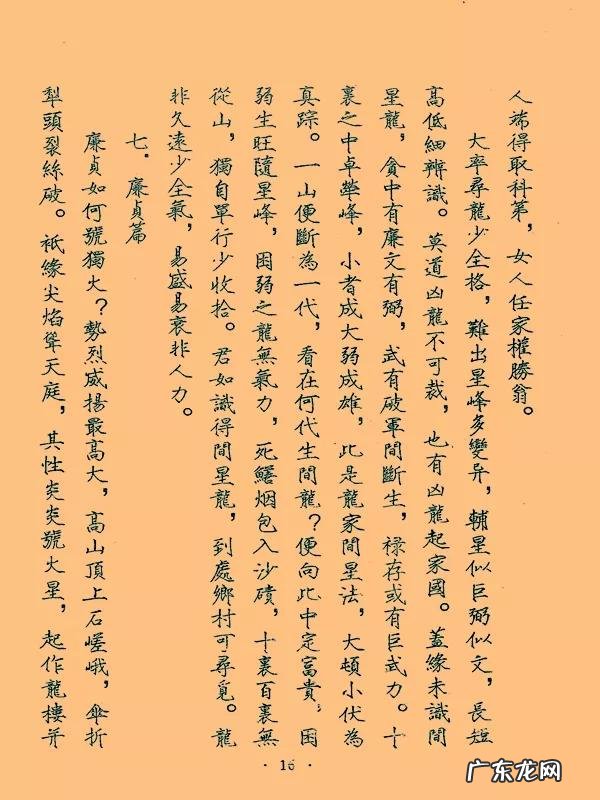 人端得取科第，女人任家權勝翁。
大率尋龍少全格，難出星峰多變异，輔星似巨弼似文，長短
高低細辨識。莫道凶龍不可裁，也有凶龍起家國。蓋緣未識間
星龍，貪中有廉文有弼，武有破軍間斷生，禄存或有巨武力。十
裏之中卓犖峰，小者成大弱成雄，此是龍家間星法，大頓小伏為
真踪。一山便斷為一代，看在何代生間龍？便向此中定富貴，困
弱生旺隨星峰，困弱之龍無氣力，死鱔烟包入沙磧，十裏百裏無
從山，獨自單行少收拾。君如識得間星龍，到處鄉村可尋覓。龍
非久遠少全氣，易盛易衰非人力。
七．廉貞篇
廉貞如何號獨火？勢烈威揚最高大，高山頂上石嵯峨，傘折
犁頭裂絲破。衹緣尖焰聳天庭，其性炎炎號火星，起作龍樓并
·16·
广东龙网